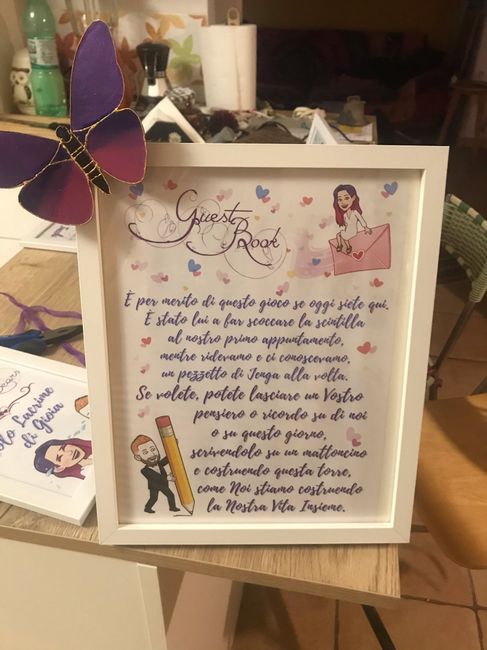 Guest
Book
È per merito di questo gioco se oggi siete qui.
È stato lui a far scoccare la scintilla
al nostro primo appuntamento,
mentre ridevamo e ci conoscevamo,
un pezzetto di Jenga alla volta.
Se volete, potete lasciare un Vostro
pensiero o ricordo su di noi
o su questo giorno,
scrivendolo su un mattoncino
e costruendo questa torre,
come Noi stiamo costruendo
la Nostra Vita Insieme.
Lacrime
di Gioia